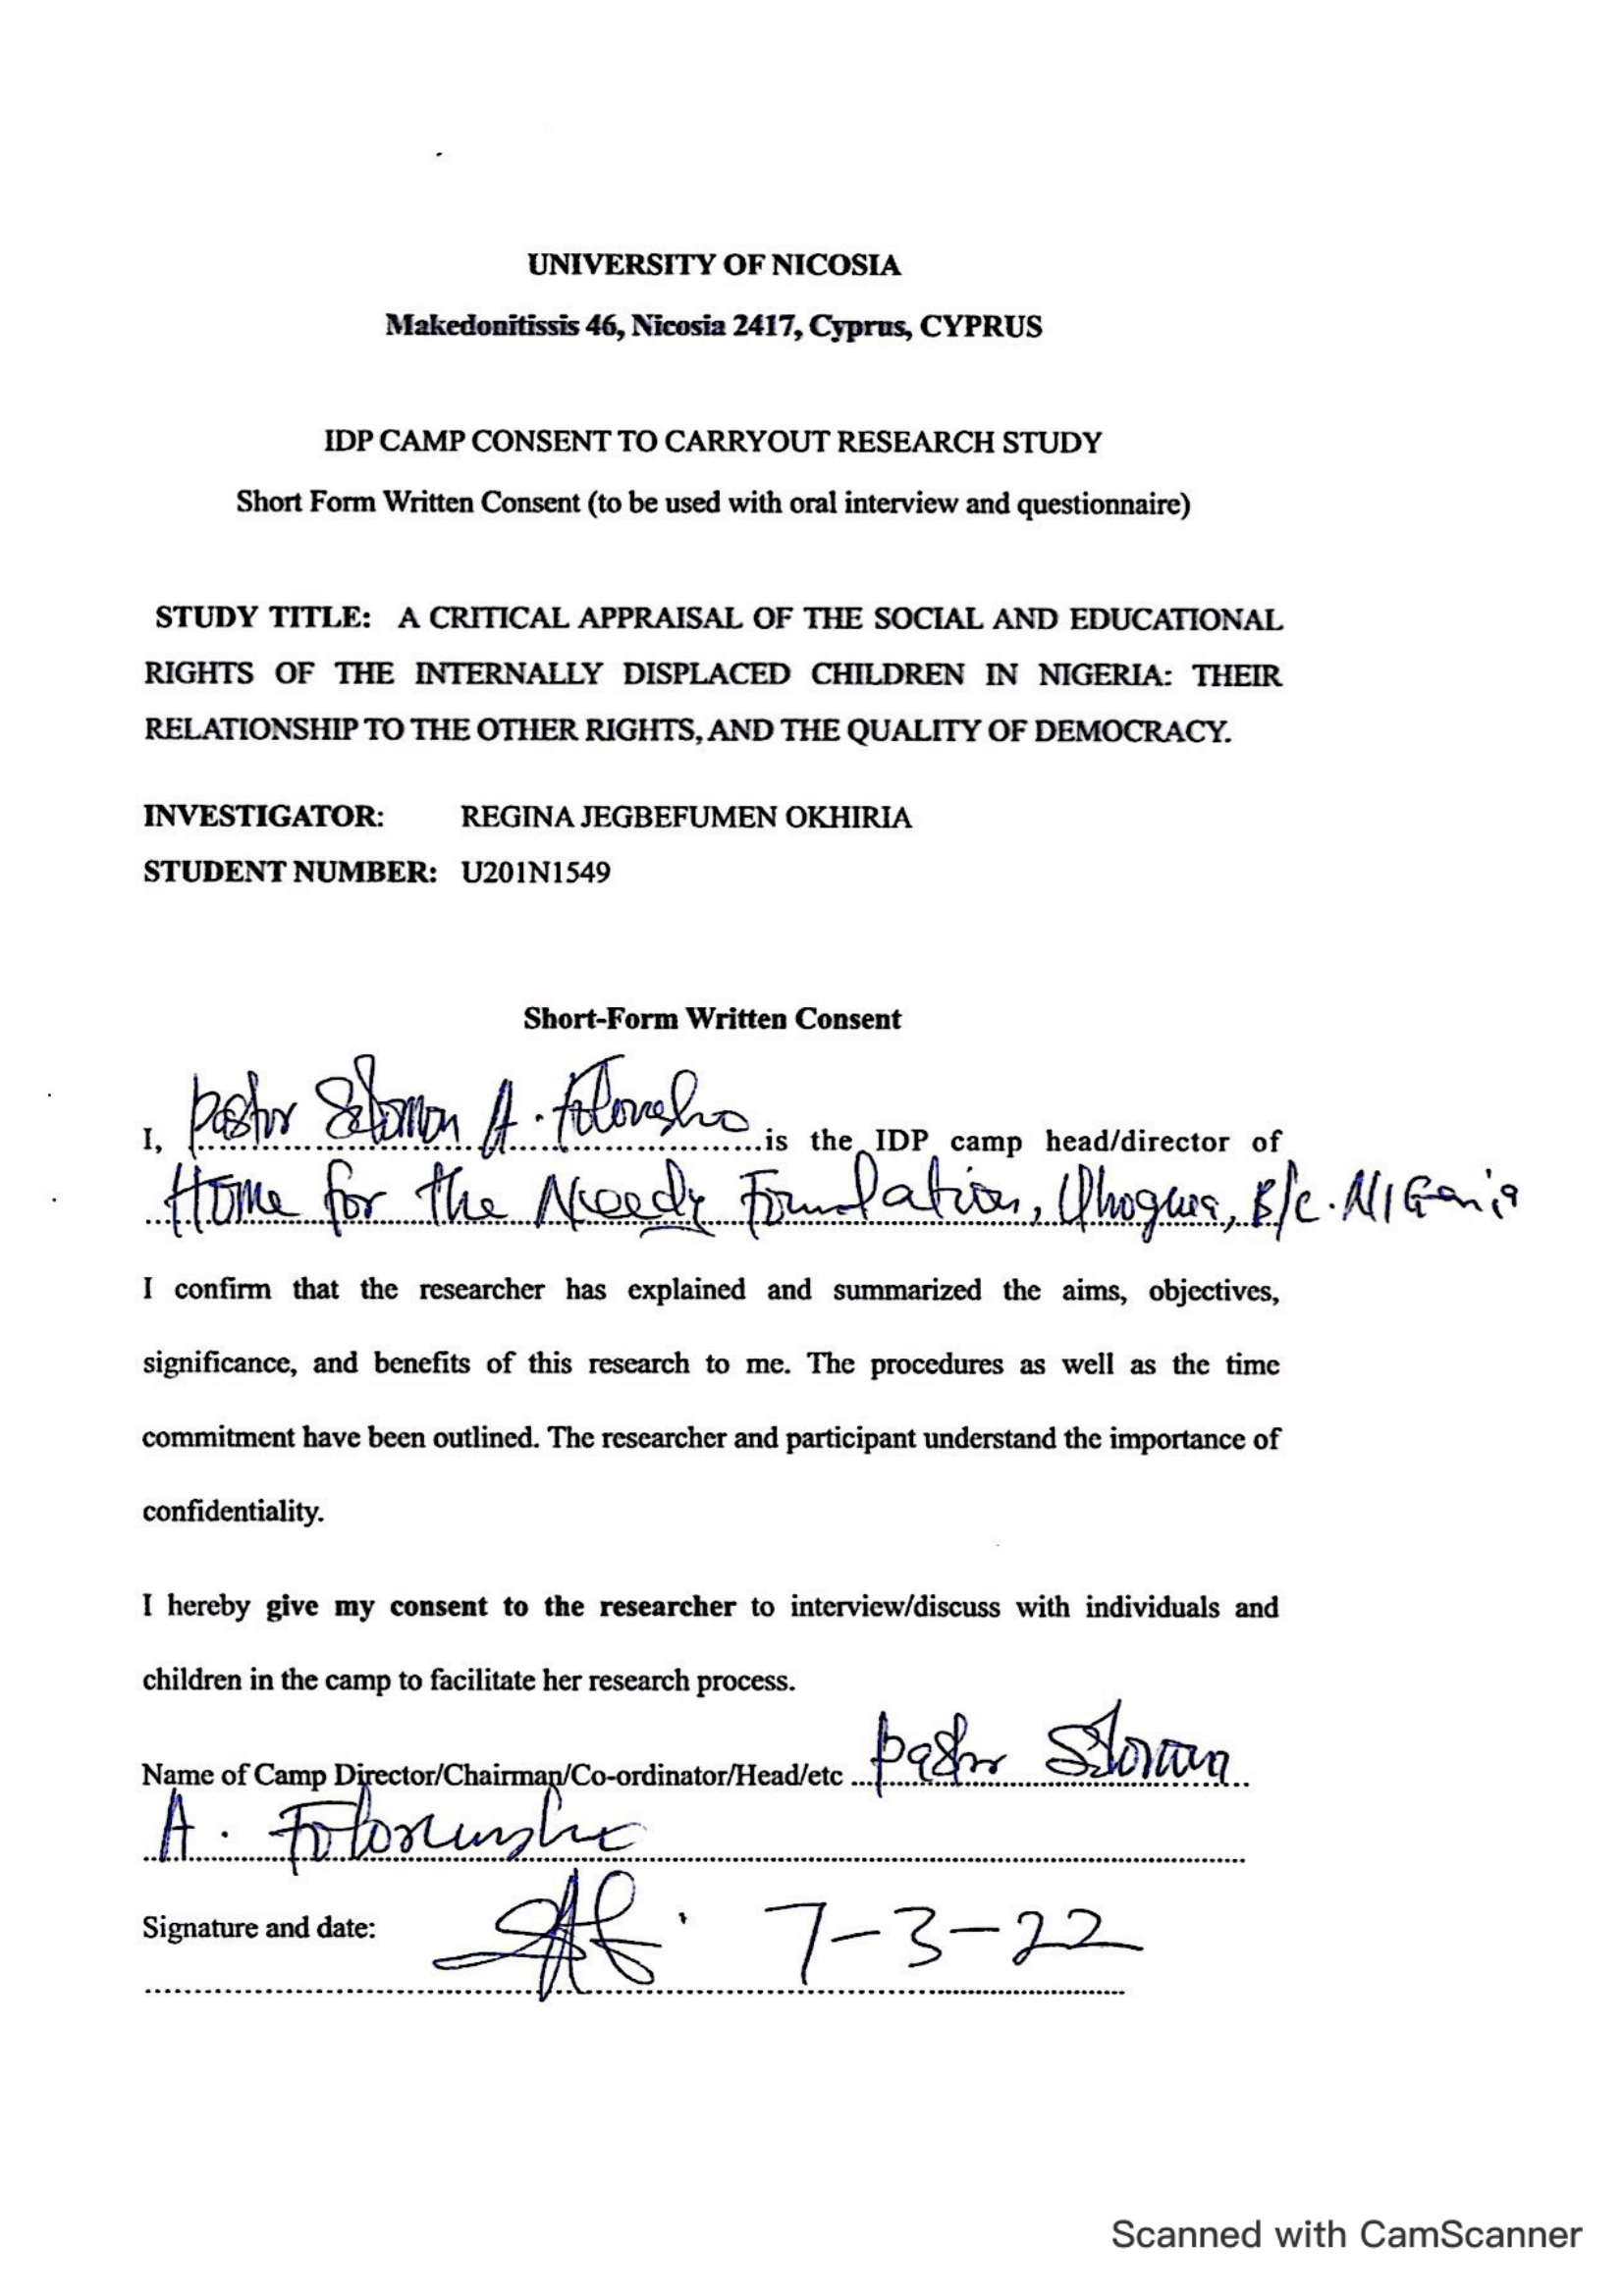 UNIVERSITY OF NICOSIA
Makedonitissis 46, Nicosia 2417, Cyprus, CYPRUS
IDP CAMP CONSENT TO CARRYOUT RESEARCH STUDY
Short Form Written Consent (to be used with oral interview and questionnaire)
STUDY TITLE: A CRITICAL APPRAISAL OF THE SOCIAL AND EDUCATIONAL
RIGHTS OF THE INTERNALLY DISPLACED CHILDREN IN NIGERIA: THEIR
RELATIONSHIP TO THE OTHER RIGHTS, AND THE QUALITY OF DEMOCRACY.
INVESTIGATOR: REGINA JEGBEFUMEN OKHIRIA
STUDENT NUMBER: U201N1549
Short-Form Written Consent
I, Pastor Solomon A. Folorunsho is the IDP camp head/director of
Home for the Needy Foundation, Uhogua, B/C. Nigeria
I confirm that the researcher has explained and summarized the aims, objectives,
significance, and benefits of this research to me. The procedures as well as the time
commitment have been outlined. The researcher and participant understand the importance of
confidentiality.
I hereby give my consent to the researcher to interview/discuss with individuals and
children in the camp to facilitate her research process.
Name of Camp Director/Chairman/Co-ordinator/Head/etc Pastor Solomon
A. Folorunsho
Signature and date: 7-3-22
Scanned with CamScanner